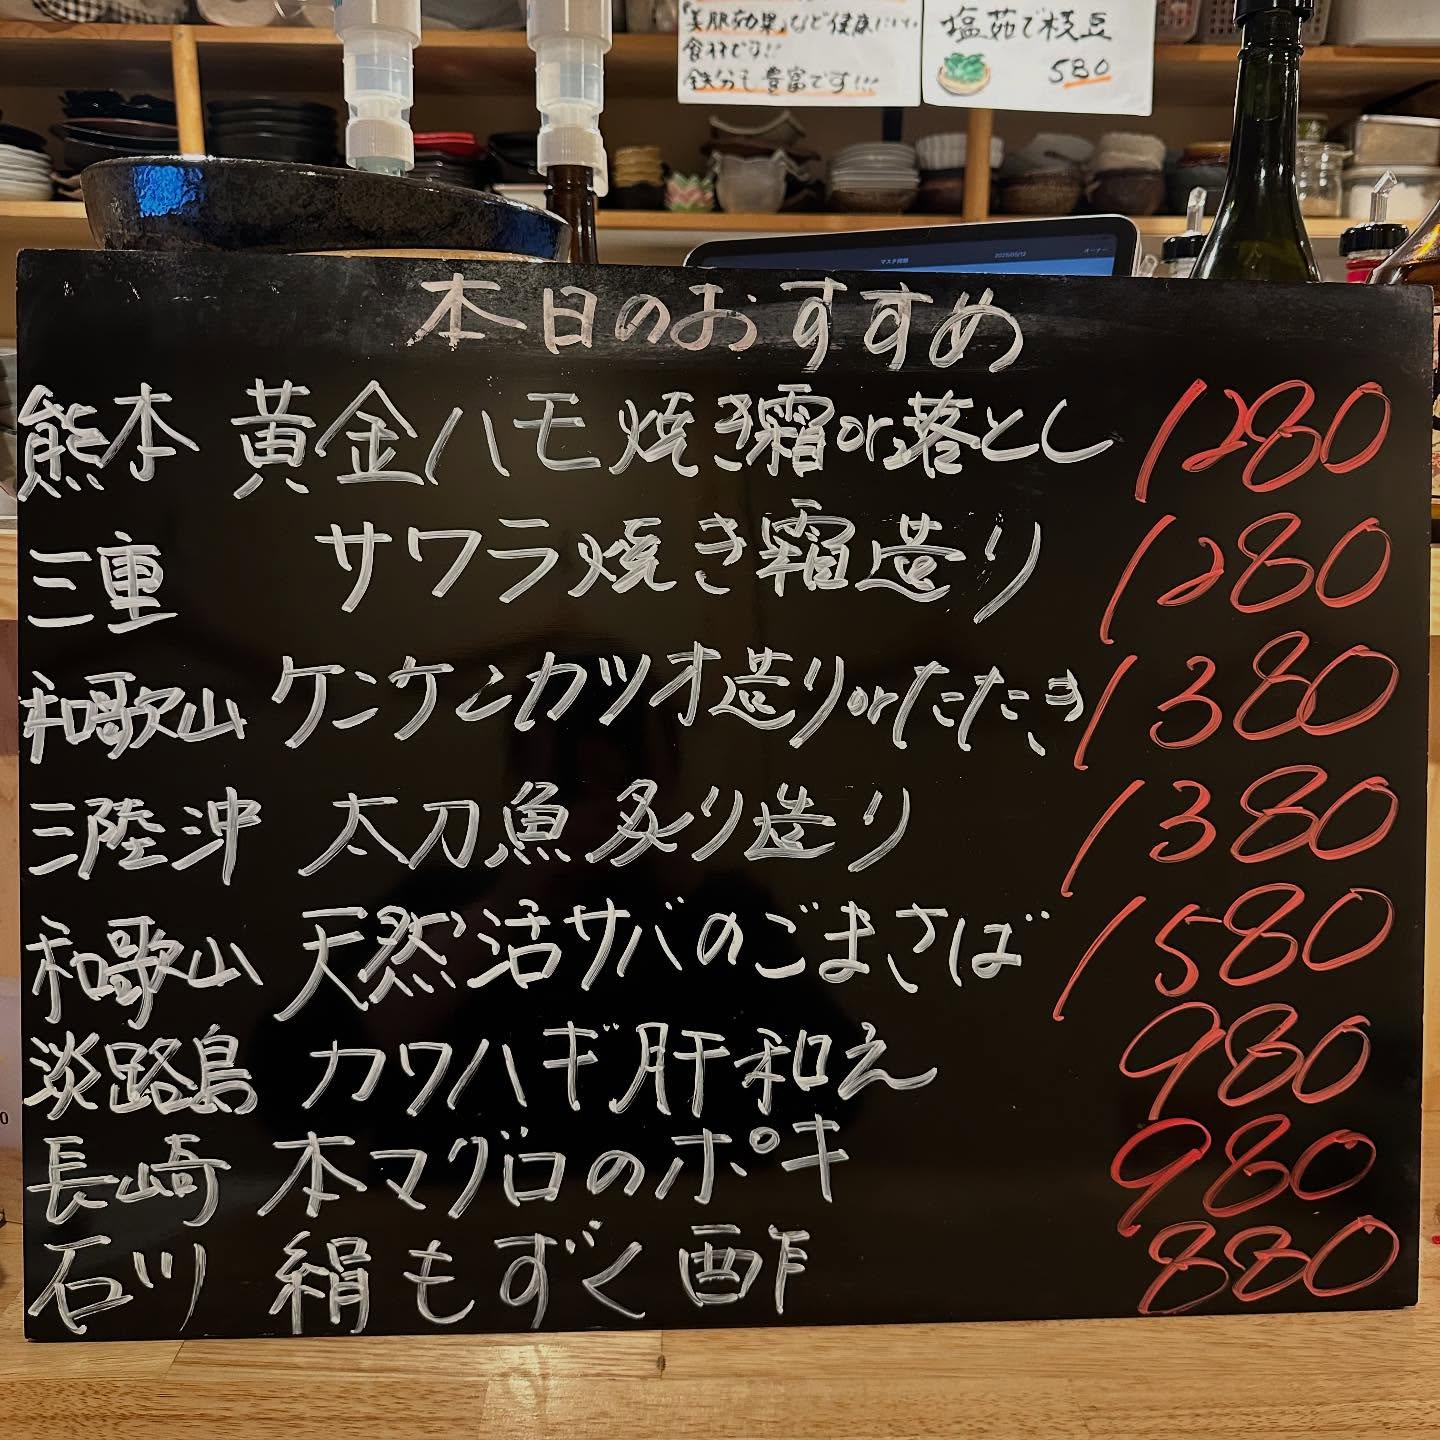 「美肌効果」など健康にいい
食材です!!
鉄分も豊富です!!!
塩茹で枝豆
580
マスタ同期 2025/05/12 オーナー
本日のおすすめ
熊本 黄金ハモ焼き霜or落とし 1280
三重 サワラ焼き霜造り 1280
和歌山 ケンケンカツオ造りorたたき 1380
三陸沖 太刀魚炙り造り 1380
和歌山 天然活サバのごまさば 1580
淡路島 カワハギ肝和え 980
長崎 本マグロのポキ 980
石川 絹もずく酢 880